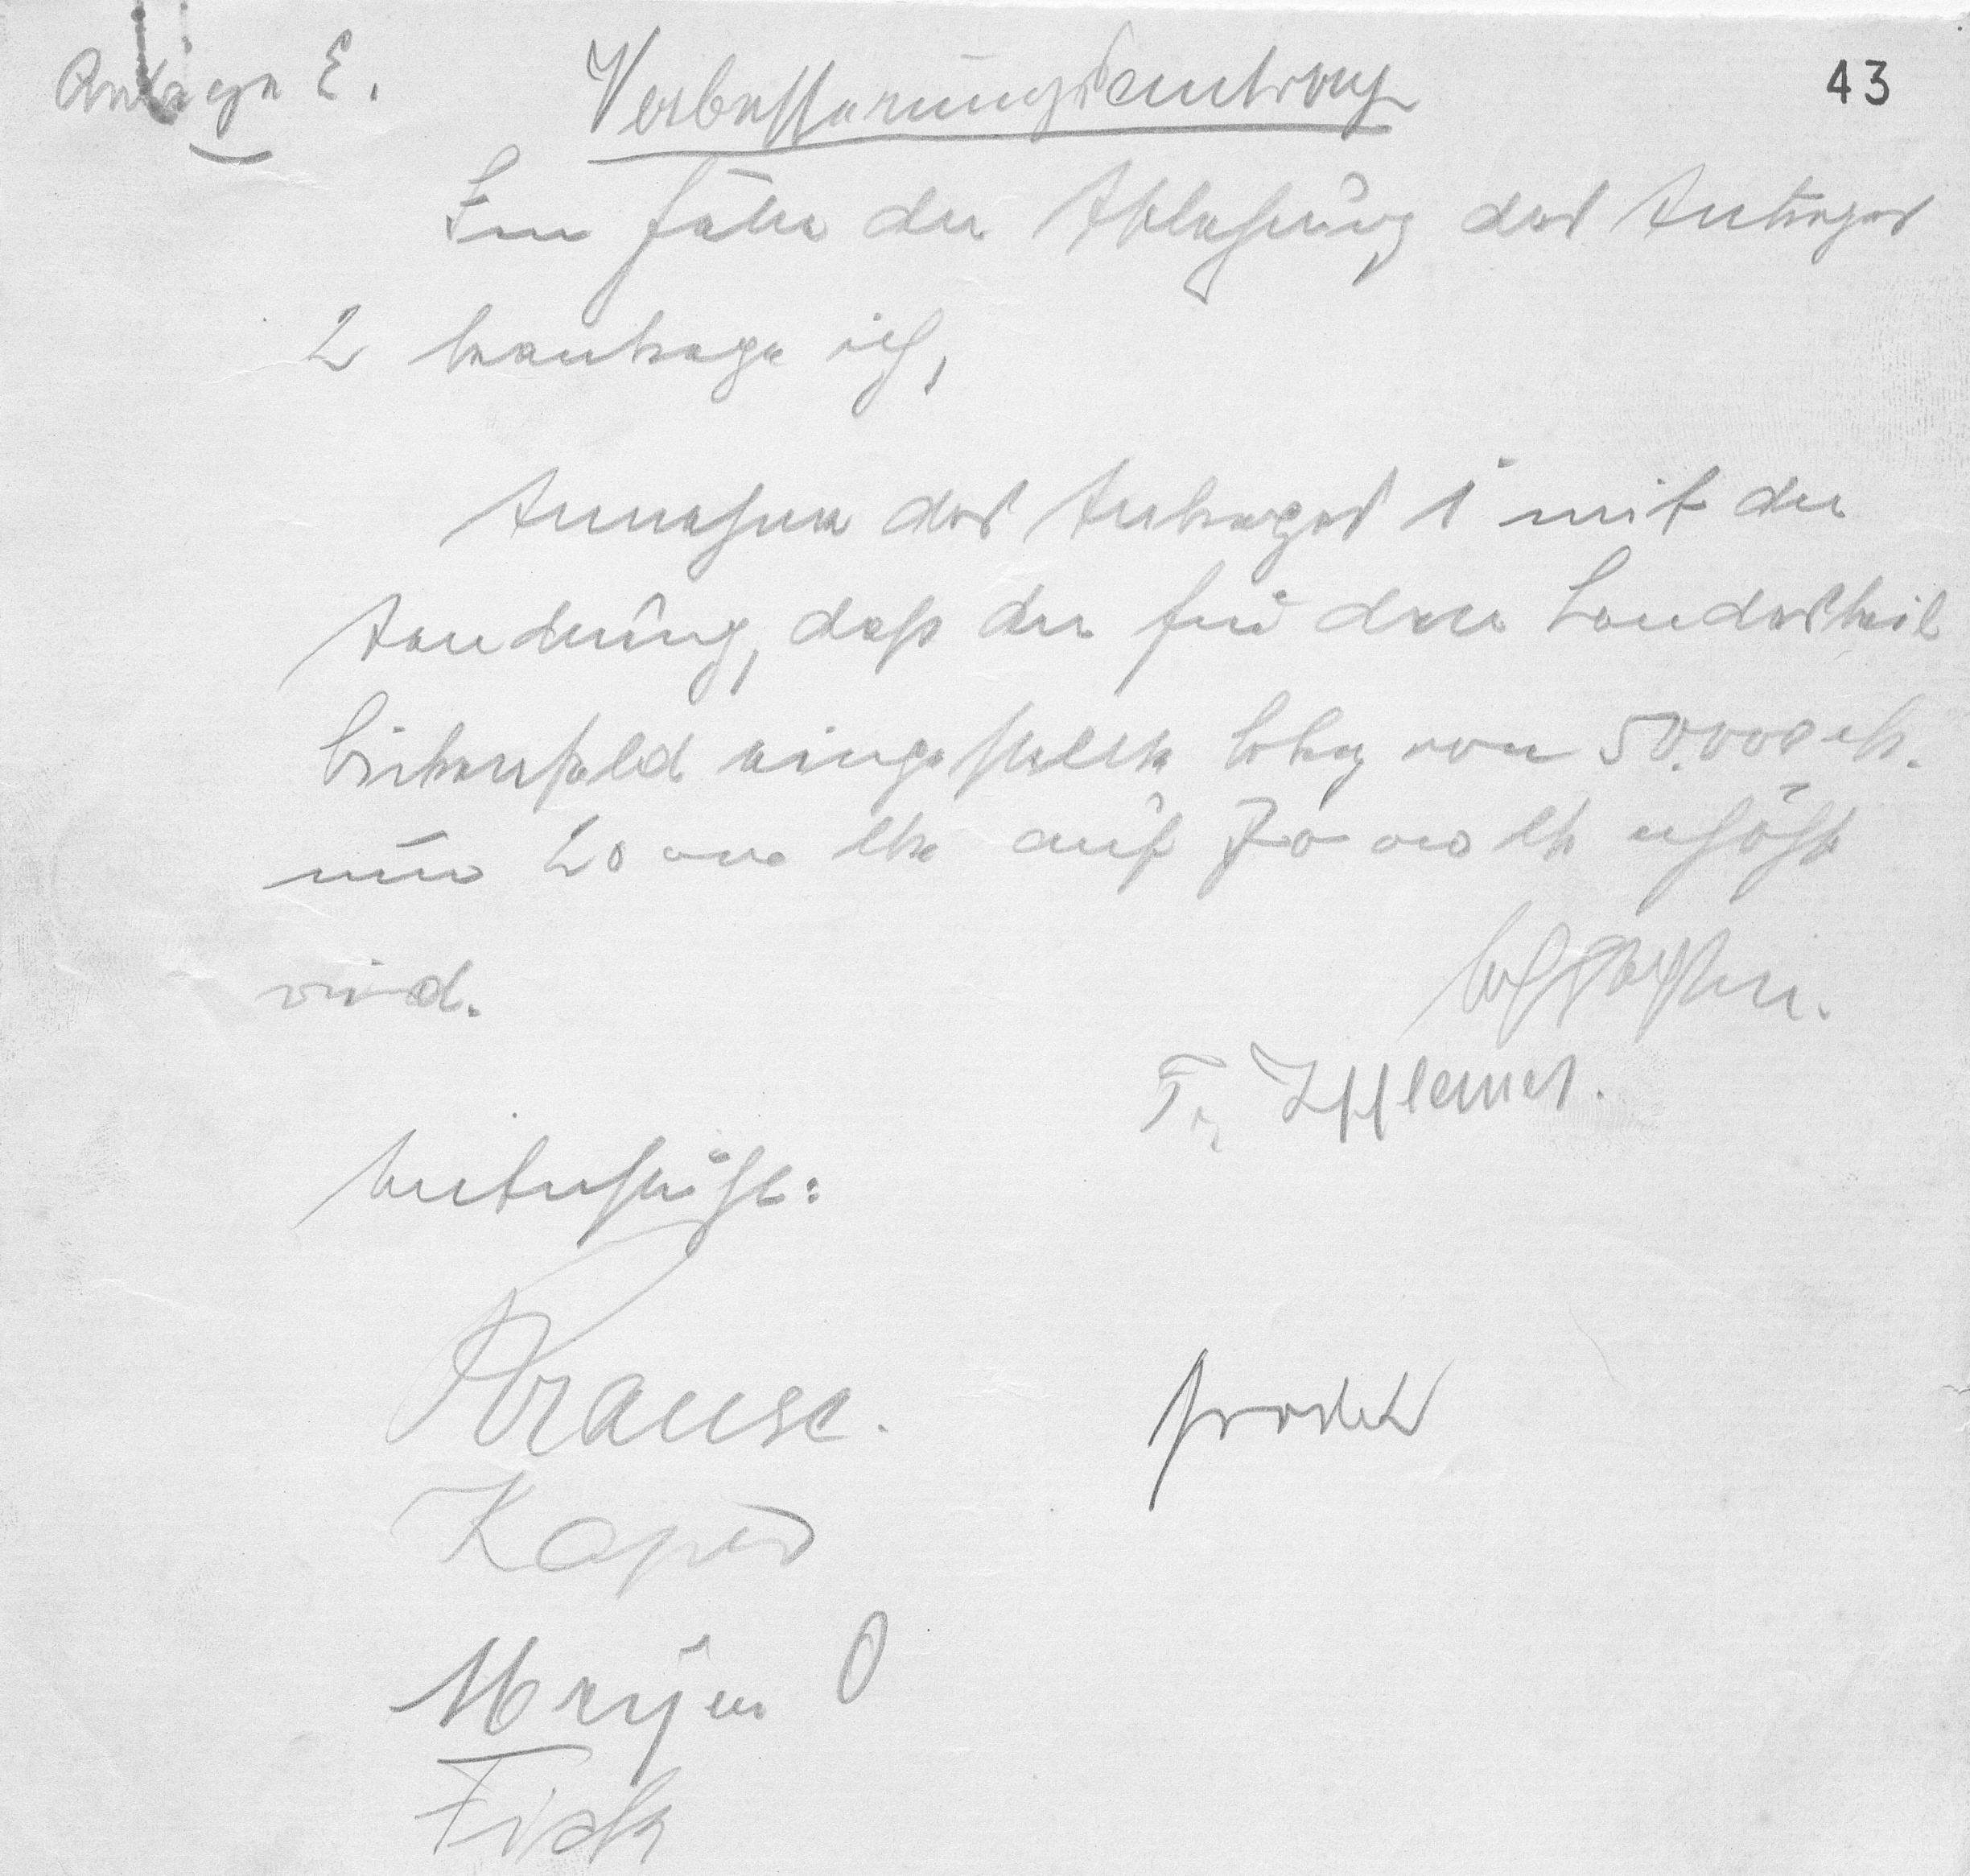 Anlage E. Verbesserungsantrag 43
Im Falle der Ablehnung des Antrages
2 beantrage ich,
Annahme des Antrages 1 mit der
Aenderung, daß der für den Landesteil
Birkenfeld eingestellte Betrag von 50.000 Mk.
um 20 000 Mk auf 70 000 Mk erhöht
wird.
Unterstützt:
Krause.
Meyer O
Fick